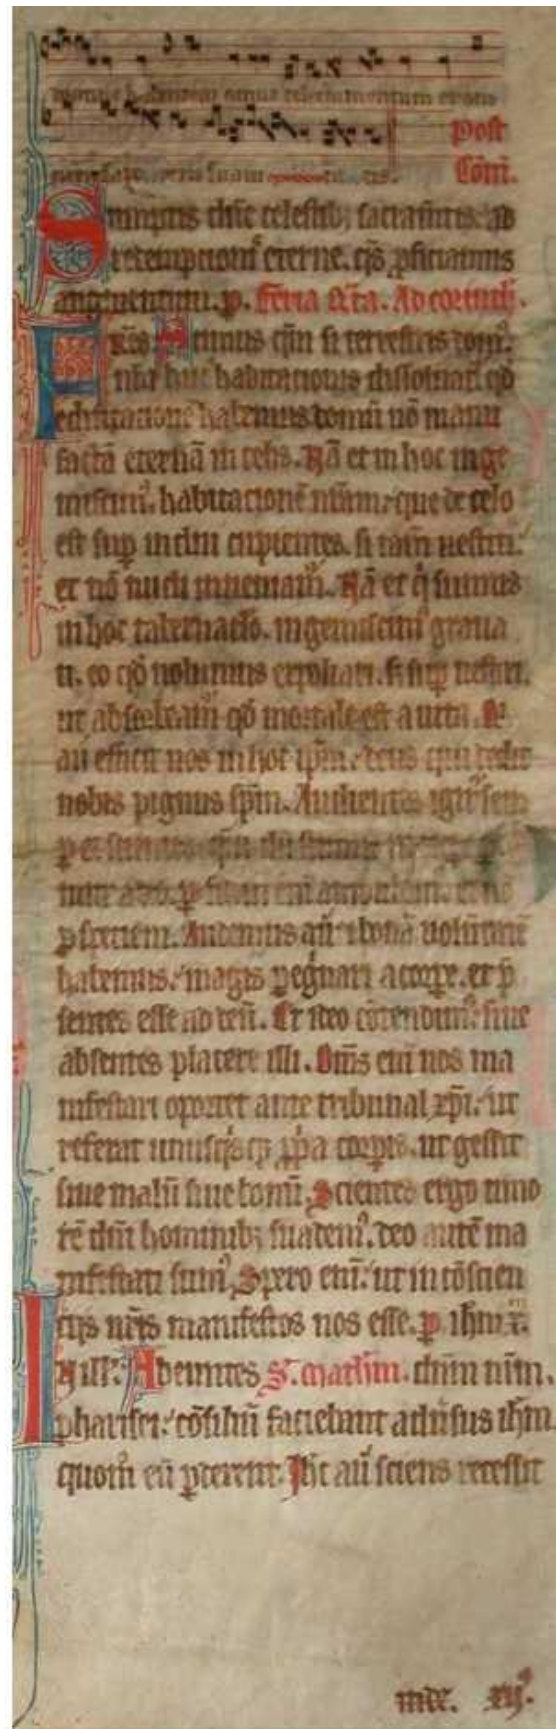 Post
Com̄.
Sumptis dn̄e celestibȝ sacramētis. ad
redemptionē eterne. q̄s p̄ficiamus
augmentum. p. Feria sc̄da. Ad corinth̄.
Fr̄es Scimus qm̄ si terrestris dom᷒
nr̄a hui᷒ habitationis dissoluat᷑ qd̄
edificationē habemus domū nō manu
factā eternā in celis. Nā et in hoc inge
miscim᷒. habitationē nr̄am. que de celo
est sup indui cupientes. si tamē uestiti.
et nō nudi inueniam᷒. Nā et q̄ sumus
in hoc tabernac̄lo. ingemiscim᷒ graua
ti. eo qd̄ nolumus expoliari. s; sup uestiri.
ut absorbeat᷑ qd̄ mortale est a uita. Q̄i
aū efficit nos in hoc ip̄m. deus qui dedit
nobis pignus sp̄m. Audentes igit᷑ sem
p et scientes qm̄ dū sumus in
a dn̄o. p fidem eni ambulam᷒. et nō
p speciem. Audemus aū 7 bonā uolūtatē
habemus. magis peg̈nari a corpe. et p̄
sentes esse ad deū. Et ideo cōtendim᷒. siue
absentes placere illi. Om̄s eni nos ma
nifestari oportet ante tribunal xp̄i. ut
referat unusq̄sq; p̄pa corpis. ut gessit
siue malū siue bonū. Scientes ergo timo
rē dn̄i hominibȝ suadem᷒. deo autē ma
nifestati sum᷒. Spero eni. ut in cōscien
tijs ur̄is manifestos nos esse. p ihm x̄.
In ill᷒. Adeuntes S. mathm̄. dn̄m nr̄m.
pharisei. cōsiliū faciebant aduˢus ih̄m.
quom᷒ eū p̄derent. Ih̄c aū sciens recessit